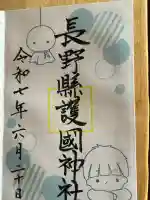 長野縣護國神社
令和七年六月二十日